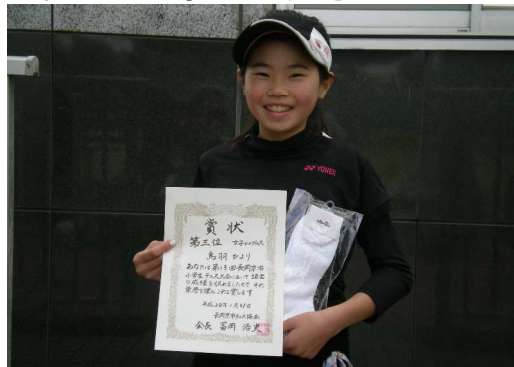 YONEX
賞状
第三位 女子シングルス
鳥羽 ひより
あなたは第13回長岡京市
小学生テニス大会において頭書
の成績を収められたので その
栄誉を讃えこれを賞します
長岡京市テニス協会
会長 富岡 浩史